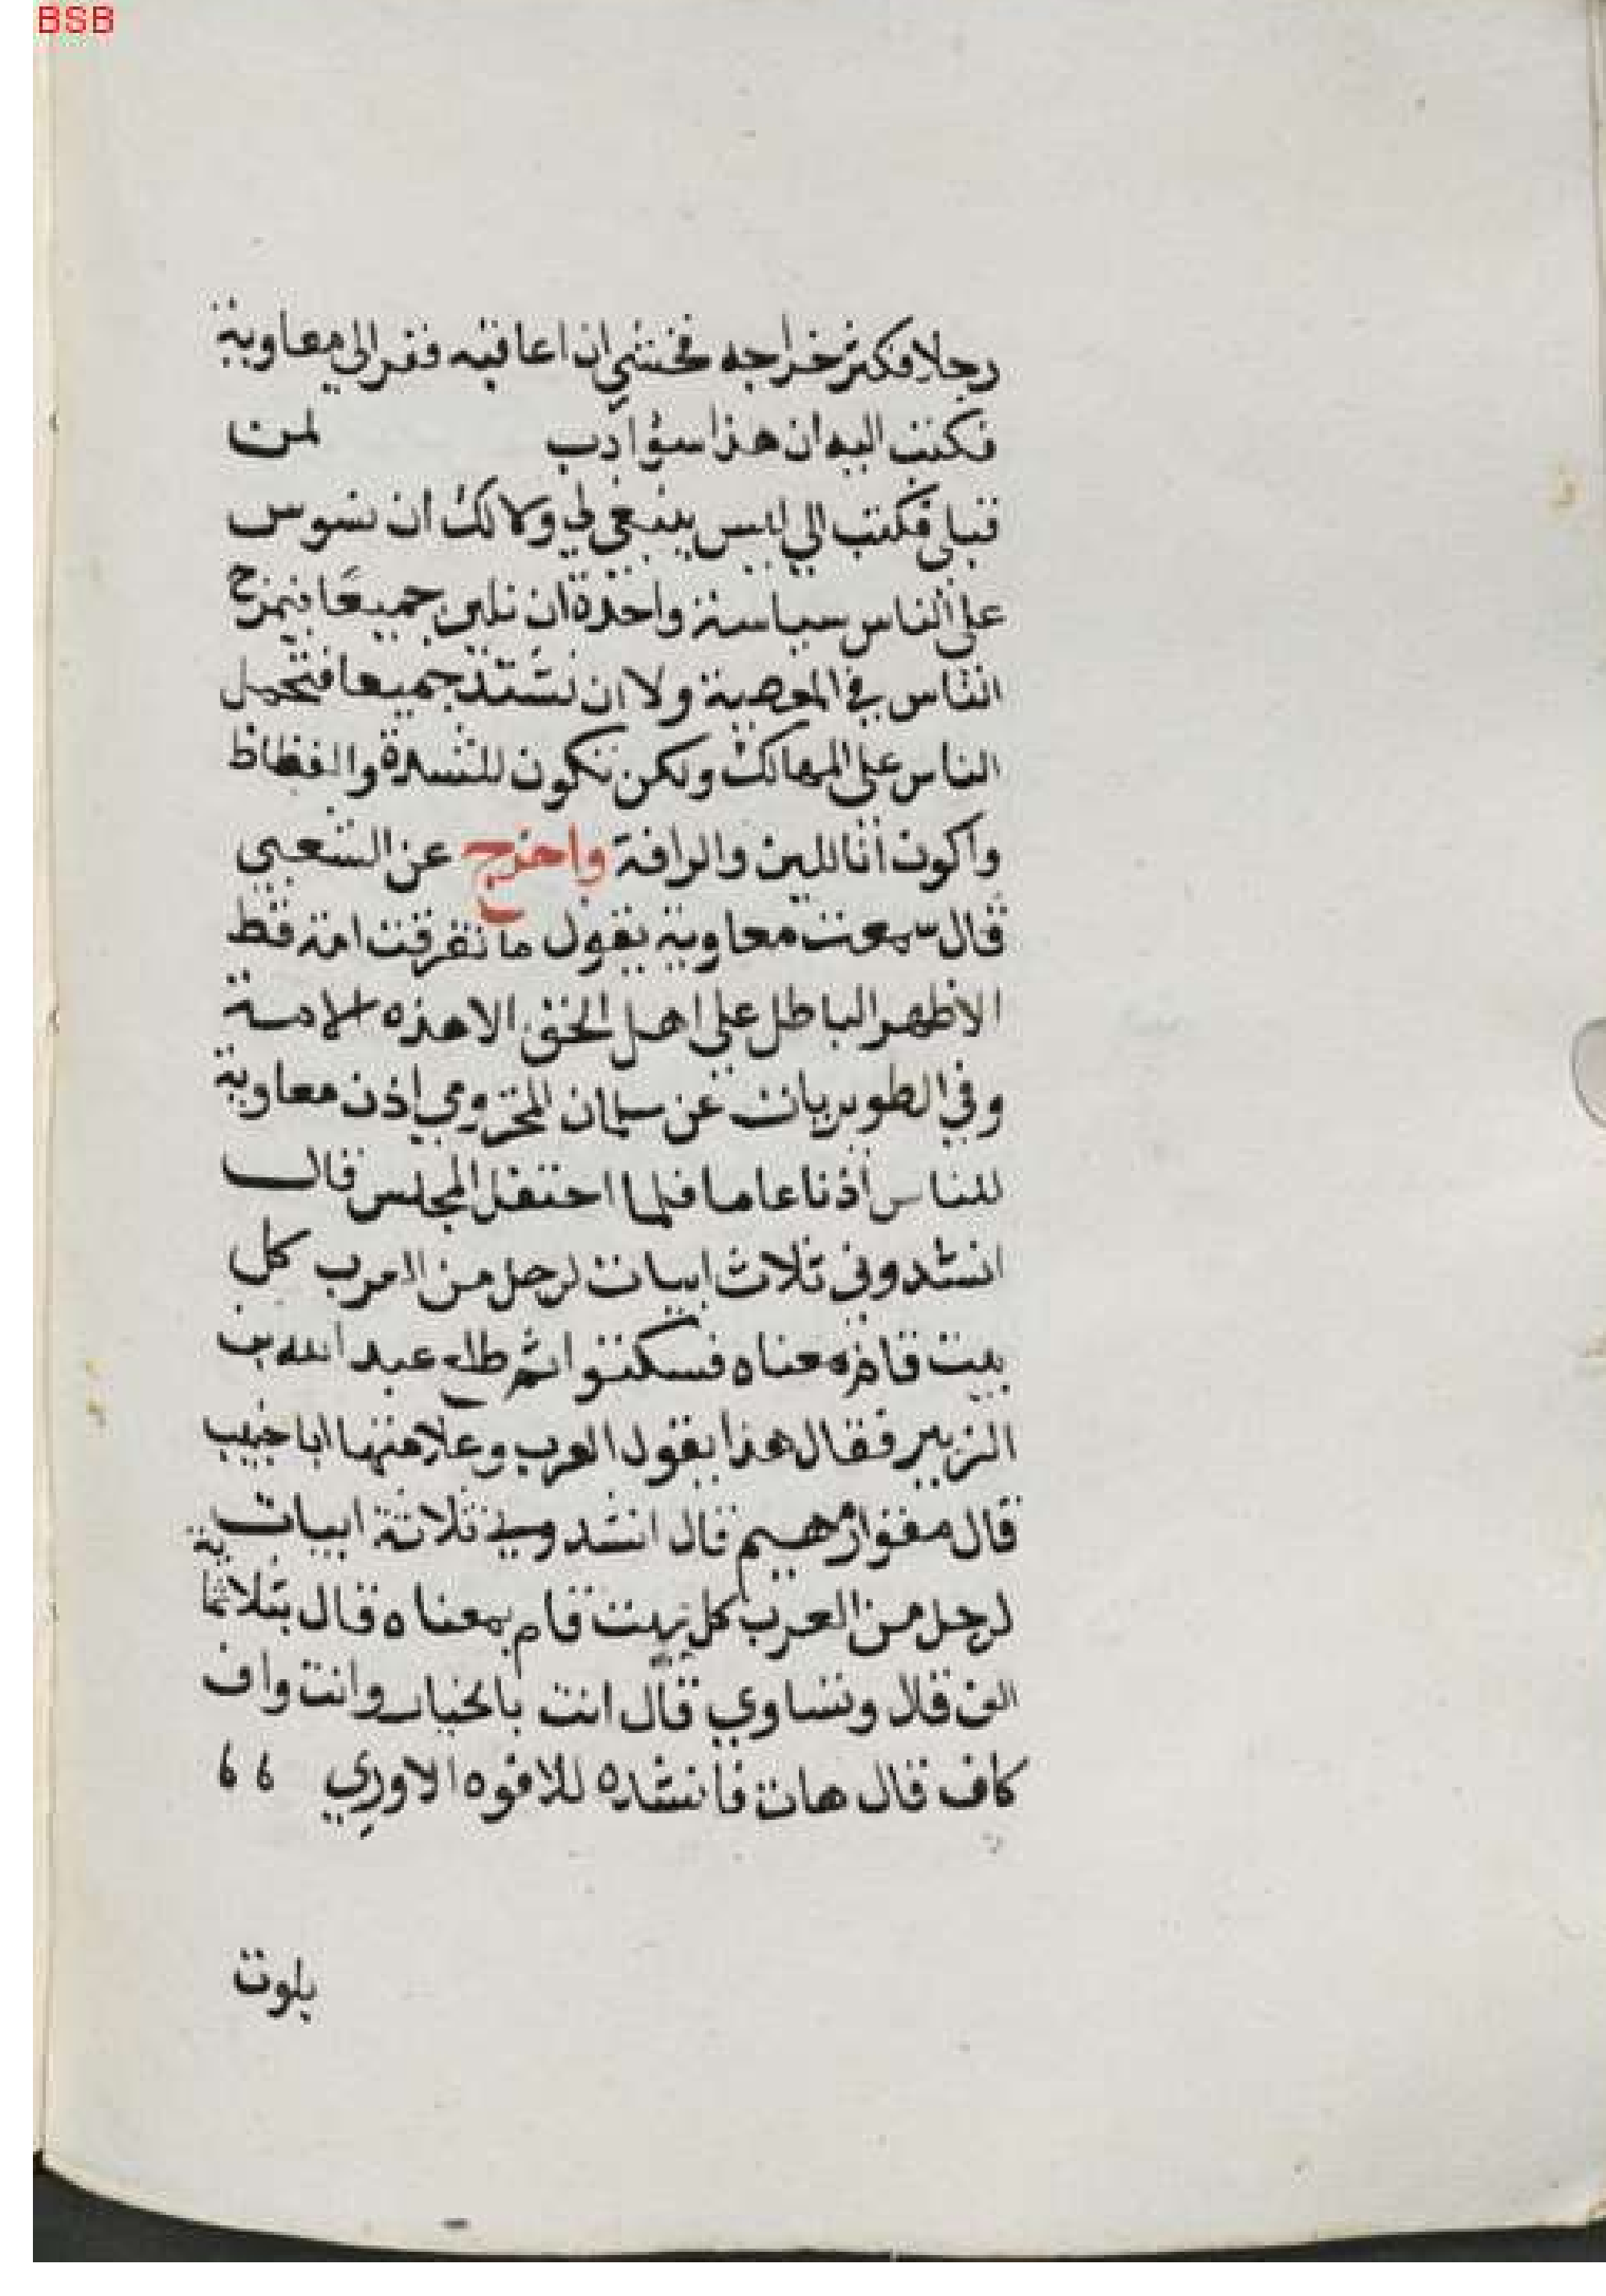 BSB
رجلا فكثر خراجه فخشي ان اعاقبه ففر الى معاوية
فكتبت اليه ان هذا سوء ادب لمن
قبلي فكتب الي ليس ينبغي لي ولا لك ان نسوس
على الناس سياسة واحدة ان نلين جميعا فيمرح
الناس في المعصية ولا ان نشتد جميعا فنحمل
الناس على المهالك ولكن تكون للشدة والفظاظ
واكون انا للين والرافة واخرج عن الشعبي
قال سمعت معاوية يقول ما تفرقت امة قط
الا ظهر الباطل على اهل الحق الا هذه الامة
وفي الطويريات عن سليمان المخزومي اذن معاوية
للناس اذنا عاما فلما احتفل المجلس قال
انشدوني ثلاث ابيات لرجل من العرب كل
بيت قائم معناه فسكتوا ثم طلع عبد الله بن
الزبير فقال هذا يقول العرب وعلامتها ابا خبيب
قال مهيم قال انشدوني ثلاثة ابيات
لرجل من العرب كل بيت قام بمعناه قال بثلاثماية
الف قال وتساوي قال انت بالخيار وانت واف
كاف قال هات فانشده للافوه الاودي
بلوت